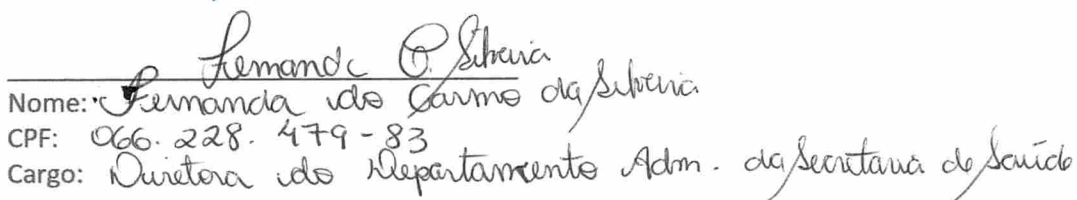 Fernanda C. Silveira
Nome: Fernanda do Carmo da Silveira
CPF: 066.228.479-83
Cargo: Diretora do Departamento Adm. da Secretaria de Saúde